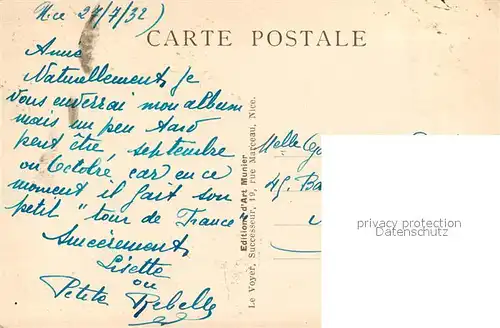 Nice 27/7/32
CARTE POSTALE
Anne
Naturellement, je
vous enverrai mon album
mais un peu tard
peut être, septembre
ou Octobre car en ce
moment il fait son
petit "tour de France"
Sincèrement,
Lisette
ou
Petite Rebelle
Editions d'Art Munier
Le Voyer, Successeur, 19, rue Marceau, Nice.
Melle
45, Ba
privacy protection
Datenschutz